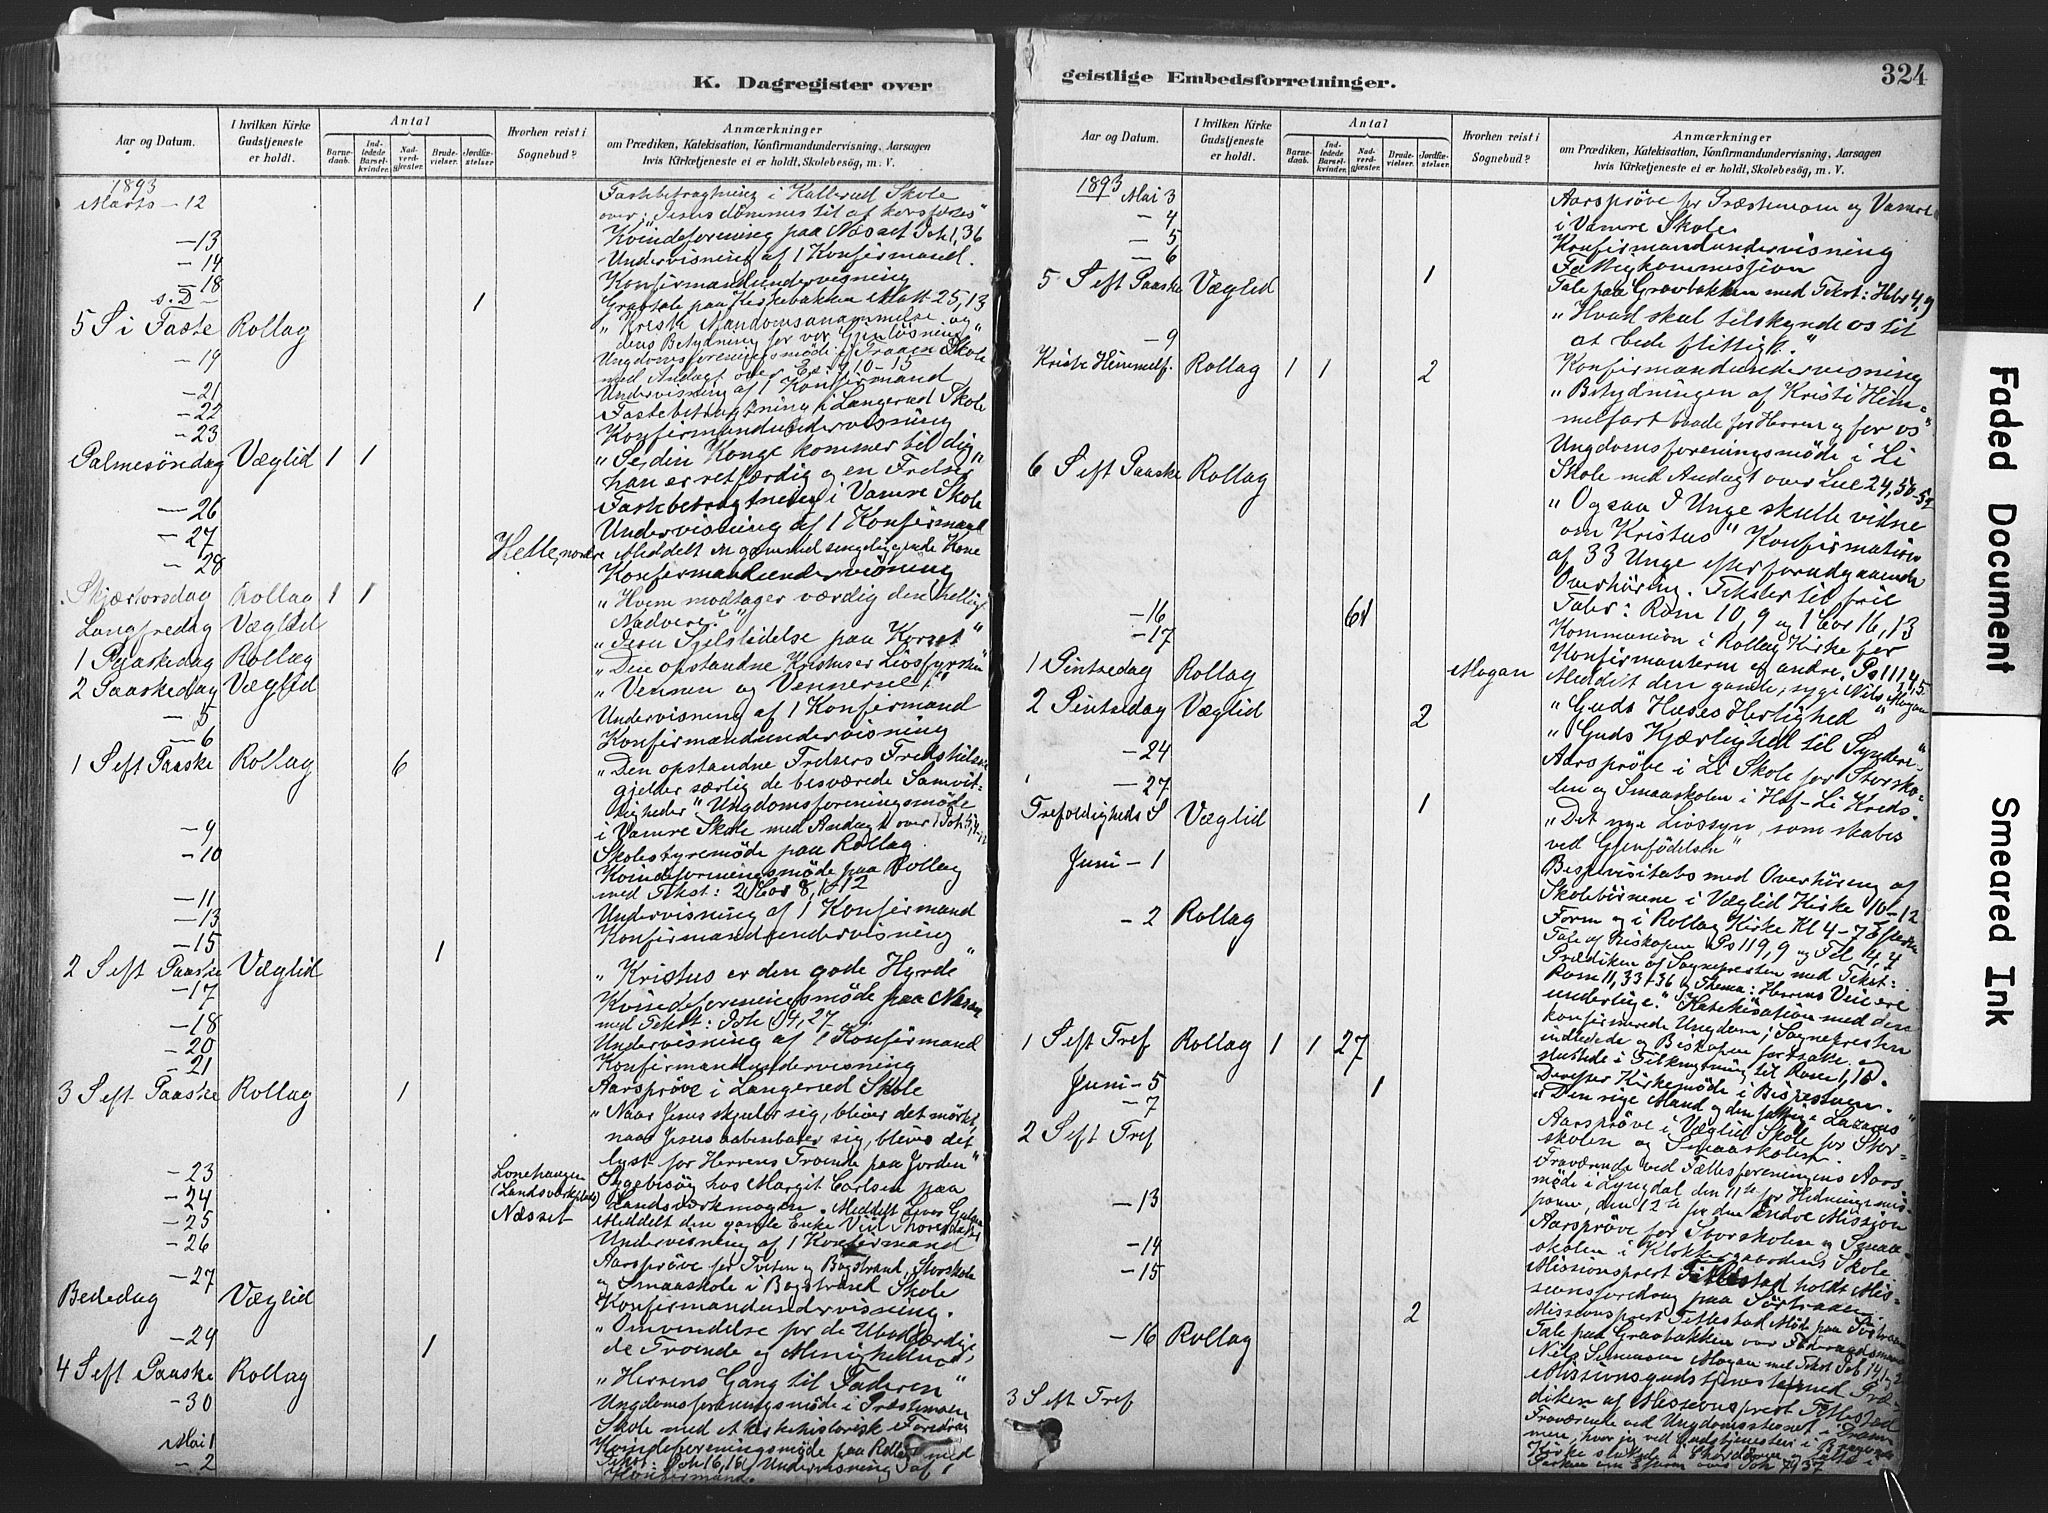 K. Dagregister over
Aar og Datum.
I hvilken Kirke Gudstjeneste er holdt.
Antal
Barne-daab.
Ind-ledede Barsel-kvinder.
Nad-verd-gjester.
Brude-vielser.
Jordfæ-stelser
Hvorhen reist i Sognebud?
Anmærkninger
om Prædiken, Katekisation, Konfirmandundervisning, Aarsagen
hvis Kirketjeneste ei er holdt, Skolebesøg, m. V.
1893
Marts - 12 Fastebetragtning i Kallerud Skole
over: "Jesus dömmes til at korsfæstes"
- 13 Kvindeforening paa Næsset Joh 1,36
- 14 Undervisning af 1 Konfirmand.
- 18 Konfirmandundervisning
s. D - 1 Gravtale paa Kirkebakken Matt 25,13
5 S i Faste Rollag "Kristi Mandomsanammelse og
dens Betydning for vor Gjenlösning"
- 19 Ungdomsforeningsmöde i Traaen Skole
med Andagt over 10-15
- 21 Undervisning af 1 Konfirmand
- 22 Fastebetragtning i Langerud Skole
- 23 Konfirmandundervisning
Palmesöndag Væglid 1 1 "Se, din Konge kommer til dig,
han er retfærdig og en Frelser"
- 26 Fastebetragtning i Vamre Skole
- 27 Undervisning af 1 Konfirmand
- 28 Helle, nordre Meddelt en gammel sengeliggende Kone
Konfirmandundervisning
Skjærtorsdag Rollag 1 1 "Hvem modtager værdig den hellige
Nadvere?"
Langfredag Væglid "Jesu Sjelslidelse paa Korset"
1 Paaskedag Rollag "Den opstandne Kristus er Livsfyrsten"
2 Paaskedag Væglid "Vennen og Vennerne"
- 5 Undervisning af 1 Konfirmand
- 6 Konfirmandundervisning
1 S eft Paaske Rollag 6 "Den opstandne Frelsers Fredshilsen
gjelder særlig de besværede Samvit-
tigheder" Ungdomsforeningsmöde
i Vamre Skole med Andagt over 1 Joh 5,4-12
- 9 Skolestyremöde paa Rollag
- 10 Kvindeforeningsmöde paa Rollag
med Tekst: 2 Kor 8,1-12
- 11 Undervisning af 1 Konfirmand
- 13 Konfirmandundervisning
- 15 1
2 S eft Paaske Væglid "Kristus er den gode Hyrde"
- 17 Kvindeforeningsmöde paa Næsset
med Tekst: Joh 14,27
- 18 Undervisning af 1 Konfirmand
- 20 Konfirmandundervisning
- 21 Aarspröve i Langerud Skole
3 S eft Paaske Rollag 1 "Naar Jesus skjuler sig, bliver det mörkt,
naar Jesus aabenbarer sig, blives det
lyst for Herrens Troende paa Jorden"
- 23 Lonehaugen Sygebesög hos Margit Carlsen paa
- 24 (Landsværkplads) Landsværkmogen. Meddelt
- 25 Næsset Meddelt den gamle Enke
- 26 Undervisning af 1 Konfirmand
Aarspröve for Tveten og Bogstrand, Storskole
- 27 og Smaaskole i Bogstrand Skole
Konfirmandundervisning.
Bededag Væglid "Omvendelse for de Ubodfærdige,
- 29 1 de Troende og Menigheden"
4 S eft Paaske Rollag "Herrens Gang til Faderen"
- 30 Ungdomsforeningsmöde i Præstemoen
Skole med et kirkehistorisk Foredrag
Mai 1 Kvindeforeningsmöde paa Rollag med
- 2 Tekst: Joh 16,16 Undervisning af 1
Konfirmand.
geistlige Embedsforretninger.
324
Aar og Datum.
I hvilken Kirke Gudstjeneste er holdt.
Antal
Barne-daab.
Ind-ledede Barsel-kvinder.
Nad-verd-gjester.
Brude-vielser.
Jordfæ-stelser.
Hvorhen reist i Sognebud?
Anmærkninger
om Prædiken, Katekisation, Konfirmandundervisning, Aarsagen
hvis Kirketjeneste ei er holdt, Skolebesøg, m. V.
1893 Mai 3 Aarspröve for Præstemoen og Vamre
- 4 i Vamre Skole
- 5 Konfirmandundervisning
- 6 Fattigkommission
5 S eft Paaske Væglid 1 Tale paa Gravbakken med Tekst: Hebr 4,9
"Hvad skal tilskynde os til
at bede flittigt."
- 9 Konfirmandundervisning
Kristi Himmelf. Rollag 1 1 2 "Betydningen af Kristi Him-
melfart baade for Herren og for os"
6 S eft Paaske Rollag Ungdomsforeningsmöde i Li
Skole med Andagt over Luc 24,50-52
"Ogsaa I Unge skulle vidne
om Kristus" Konfirmation
af 33 Unge efter forudgaaende
Overhöring. Tekster til frie
Taler: Rom 10,9 og 1 Cor 16,13
- 16 61 Kommunion i Rollag Kirke for
- 17 Konfirmanterne og andre. Ps 111,4,5
Mogan Meddelt den gamle, syge Nils Mogan
1 Pintsedag Rollag "Guds Huses Herlighed"
2 Pintsedag Væglid 2 "Guds Kjærlighed til Syndere"
- 24 Aarspröve i Li Skole for Storsko-
- 27 len og Smaaskolen i Hof-Li Kreds.
Trefoldigheds S Væglid 1 "Det nye Livssyn, som skabes
ved Gjenfödelsen"
Juni - 1 Bispevisitats med Overhöring af
Skolebörnene i Væglid Kirke 10-12
- 2 Rollag Form og i Rollag Kirke Kl 4-7 Efterm
Tale af Biskopen Ps 119,9 og Fil 4,4
Prædiken af Sognepresten med Tekst:
Rom 11,33-36 og Thema: Herrens Veie ere
underlige." Katekisation med den
konfirmerede Ungdom; Sognepresten
1 S eft Tref Rollag 1 1 27 indledede og Biskopen fortsatte og
sluttede i Tilknytning til Rom 1,16.
Juni - 5 1 Derefter Kirkemöde i Bispestuen.
- 7 "Den rige Mand og den fattige Lazarus"
2 S eft Tref Aarspröve i Væglid Skole for Stor-
skolen og Smaaskolen.
Fraværende ved Fællesforeningens Aars-
möde i Lyngdal den 11te for Hedningemis-
- 13 sionen, den 12te for den Indre Mission
Aarspröve for Storskolen og Smaa-
- 14 skolen i Klokkergaardens Skole
- 15 Missionsprest Tillestad holdt Mis-
sionsforedrag paa Sörtraaen.
2 Missionsprest Tillestad Möde paa
- 16 Rollag Tale paa Gravbakken over Föderaadsmand
Nils Simenson Mogan med Tekst Joh 14,1-2
Missionsgudstjeneste med Præ-
3 S eft Tref diken af Missionsprest Tillestad
Fraværende ved Ungdomsstevnet i Dram-
men, hvor jeg ved Gudstjenesten i Bragernes
Kirke
Joh 7,37
Faded Document
Smeared Ink